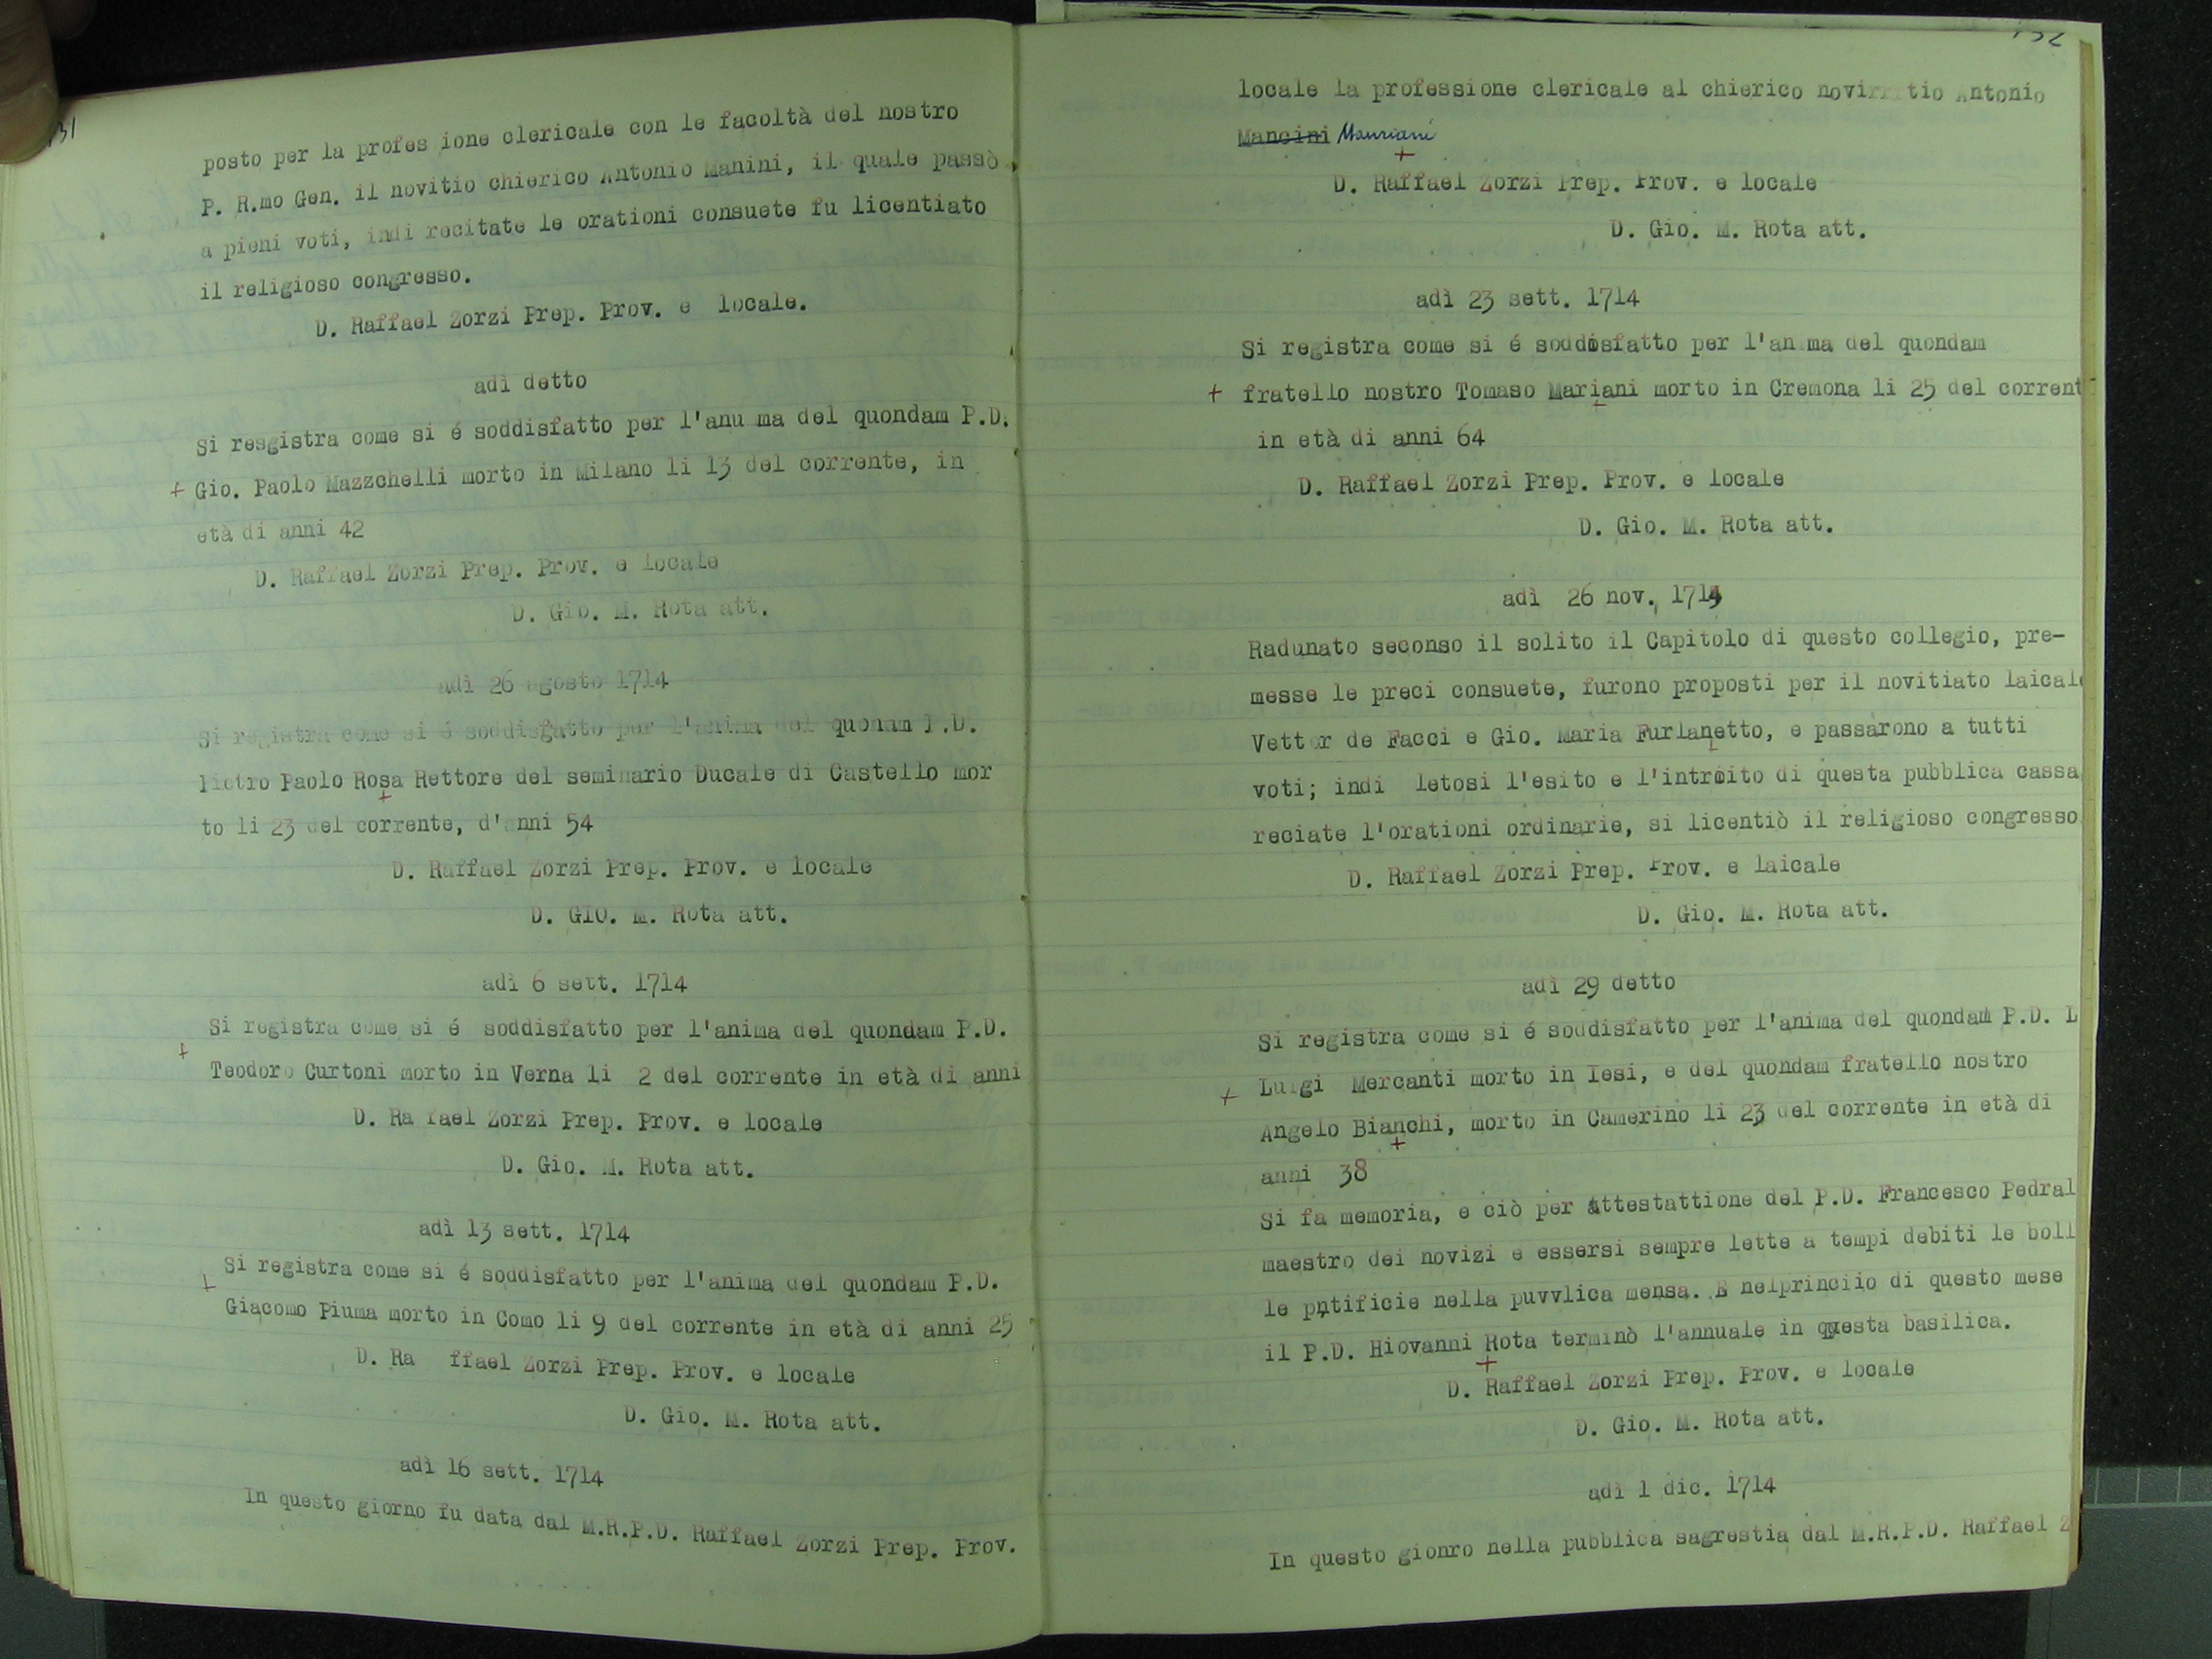 31
posto per la profes ione clericale con le facoltà del nostro
P. R.mo Gen. il novitio chierico Antonio Manini, il quale passò
a pieni voti, indi recitate le orationi consuete fu licentiato
il religioso congresso.
D. Raffael Zorzi Prep. Prov. e locale.
adì detto
Si resgistra come si é soddisfatto per l'anu ma del quondam P.D.
+ Gio. Paolo Mazzchelli morto in Milano li 13 del corrente, in
età di anni 42
D. Raffael Zorzi Prep. Prov. e locale
D. Gio. M. Rota att.
adì 26 agosto 1714
Si registra come si é soddisfatto per l'anima del quonam P.D.
Pietro Paolo Rosa Rettore del seminario Ducale di Castello mor
+
to li 23 del corrente, d'anni 54
D. Raffael Zorzi Prep. Prov. e locale
D. GIO. M. Rota att.
adì 6 sett. 1714
Si registra come si é soddisfatto per l'anima del quondam P.D.
+
Teodoro Curtoni morto in Verna li 2 del corrente in età di anni
D. Ra fael Zorzi Prep. Prov. e locale
D. Gio. M. Rota att.
adì 13 sett. 1714
Si registra come si é soddisfatto per l'anima del quondam P.D.
+
Giacomo Piuma morto in Como li 9 del corrente in età di anni 25
D. Ra ffael Zorzi Prep. Prov. e locale
D. Gio. M. Rota att.
adì 16 sett. 1714
In questo giorno fu data dal M.R.P.D. Raffael Zorzi Prep. Prov.
132
locale la professione clericale al chierico novi tio Antonio
Mancini
+
D. Raffael Zorzi Prep. Prov. e locale
D. Gio. M. Rota att.
adì 23 sett. 1714
Si registra come si é soddisfatto per l'an ma del quondam
+ fratello nostro Tomaso Mariani morto in Cremona li 25 del corrent
+
in età di anni 64
D. Raffael Zorzi Prep. Prov. e locale
D. Gio. M. Rota att.
adì 26 nov. 1714
Radunato seconso il solito il Capitolo di questo collegio, pre-
messe le preci consuete, furono proposti per il novitiato laicale
Vettor de Facci e Gio. Maria Furlanetto, e passarono a tutti
+
voti; indi letosi l'esito e l'introito di questa pubblica cassa
reciate l'orationi ordinarie, si licentiò il religioso congresso
D. Raffael Zorzi Prep. Prov. e laicale
D. Gio. M. Rota att.
adì 29 detto
Si registra come si é soddisfatto per l'anima del quondam P.D. L
+ Luigi Mercanti morto in Iesi, e del quondam fratello nostro
Angelo Bianchi, morto in Camerino li 23 del corrente in età di
+
anni 38
Si fa memoria, e ciò per attestattione del P.D. Francesco Pedral
maestro dei novizi e essersi sempre lette a tempi debiti le boll
le pntificie nella puvvlica mensa. E nelprinciio di questo mese
il P.D. Hiovanni Rota terminò l'annuale in questa basilica.
+
D. Raffael Zorzi Prep. Prov. e locale
D. Gio. M. Rota att.
adì 1 dic. 1714
In questo gionro nella pubblica sagrestia dal M.R.P.D. Raffael Z